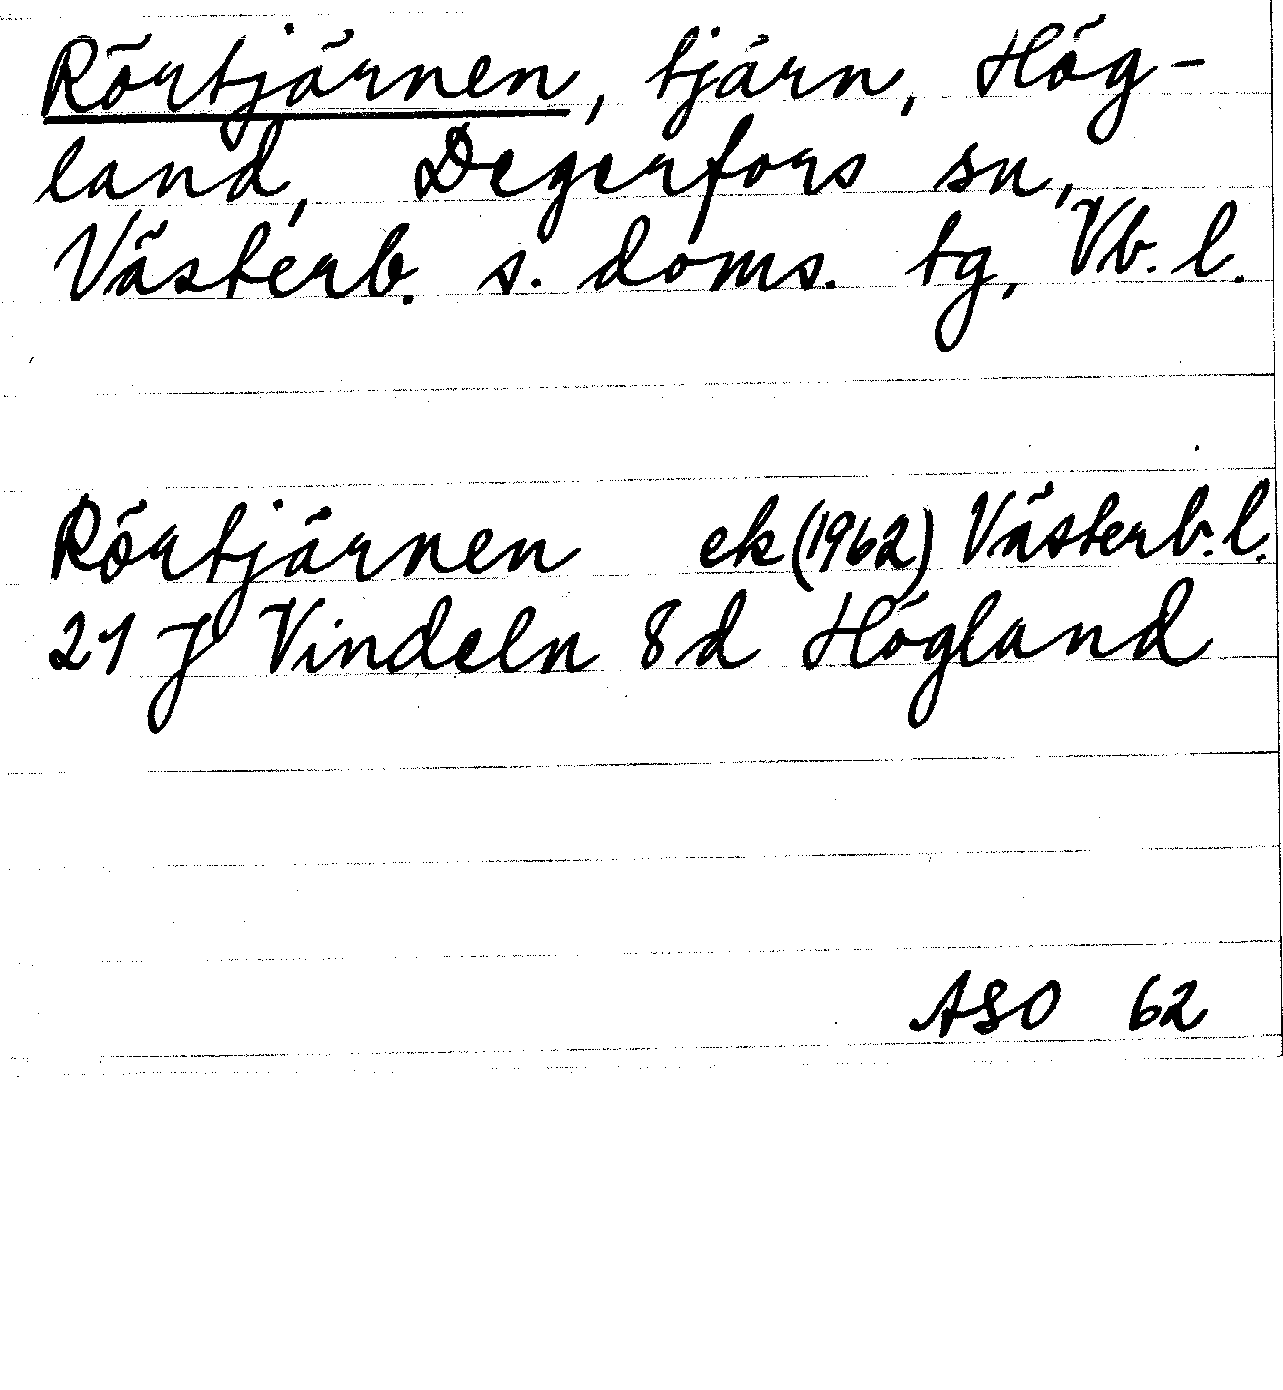 Rörtjärnen, tjärn, Hög-
land, Degerfors sn,
Västerb. s. doms. tg, Vb. l.
Rörtjärnen ek (1962) Västerb. l.
21 J Vindeln 8d Högland
ASO 62